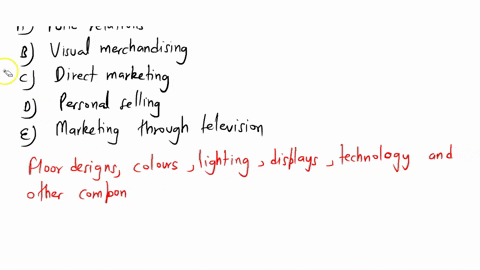 B) Visual merchandising
C) Direct marketing
D) Personal selling
E) Marketing through television
floor designs, colours, lighting, displays, technology and
other compon